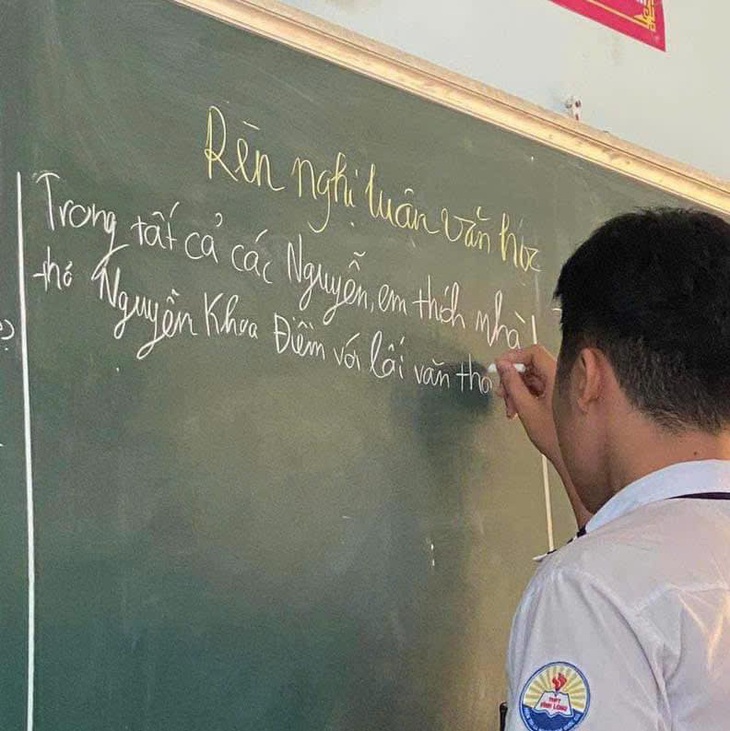 Rèn nghị luận văn học
Trong tất cả các Nguyễn, em thích nhà
thơ Nguyễn Khoa Điềm với lối văn thơ
THPT
VĨNH LONG